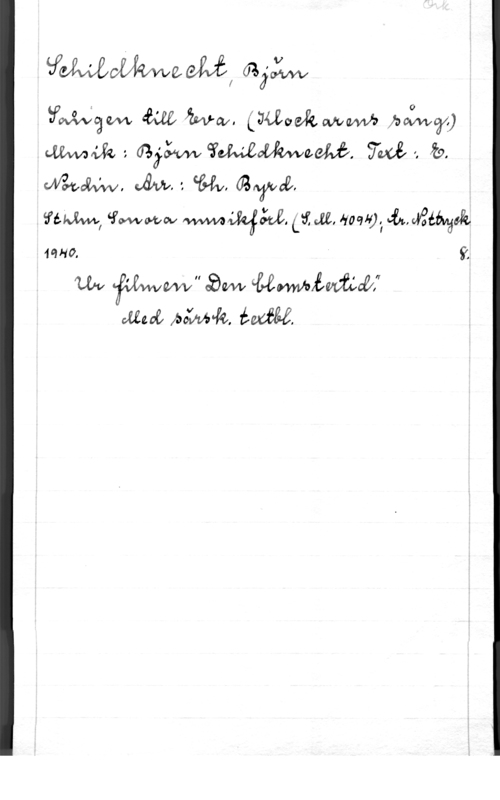 Ork.
Schildknecht, Björn
Sången till Eva. (Klockarens sång.)
Musik: Björn Schildknecht. Text: E.
Nordin. Arr.: Ch. Byrd.
Sthlm, Sonora musikförl. (S.M. 4094); tr. Nottryck
1940. 8:
Ur filmen "Den blomstertid."
Med särsk. textbl.